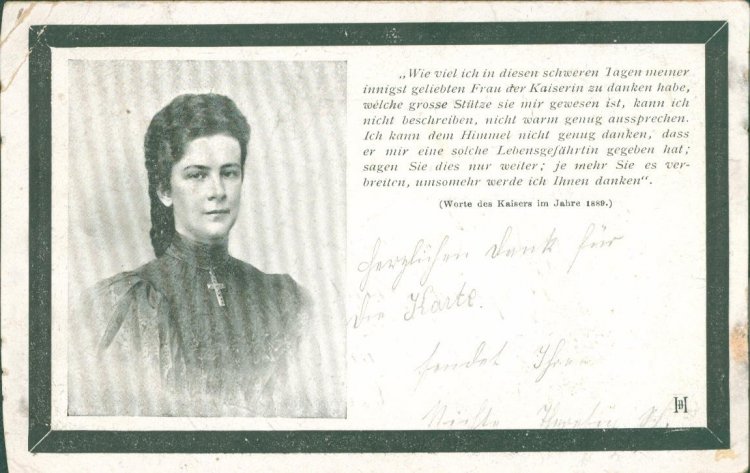 „Wie viel ich in diesen schweren Tagen meiner
innigst geliebten Frau der Kaiserin zu danken habe,
welche grosse Stütze sie mir gewesen ist, kann ich
nicht beschreiben, nicht warm genug aussprechen.
Ich kann dem Himmel nicht genug danken, dass
er mir eine solche Lebensgefährtin gegeben hat;
sagen Sie dies nur weiter; je mehr Sie es ver-
breiten, umsomehr werde ich Ihnen danken“.
(Worte des Kaisers im Jahre 1889.)
Herzlichen Dank für
die Karte.
sendet Ihre
Nichte